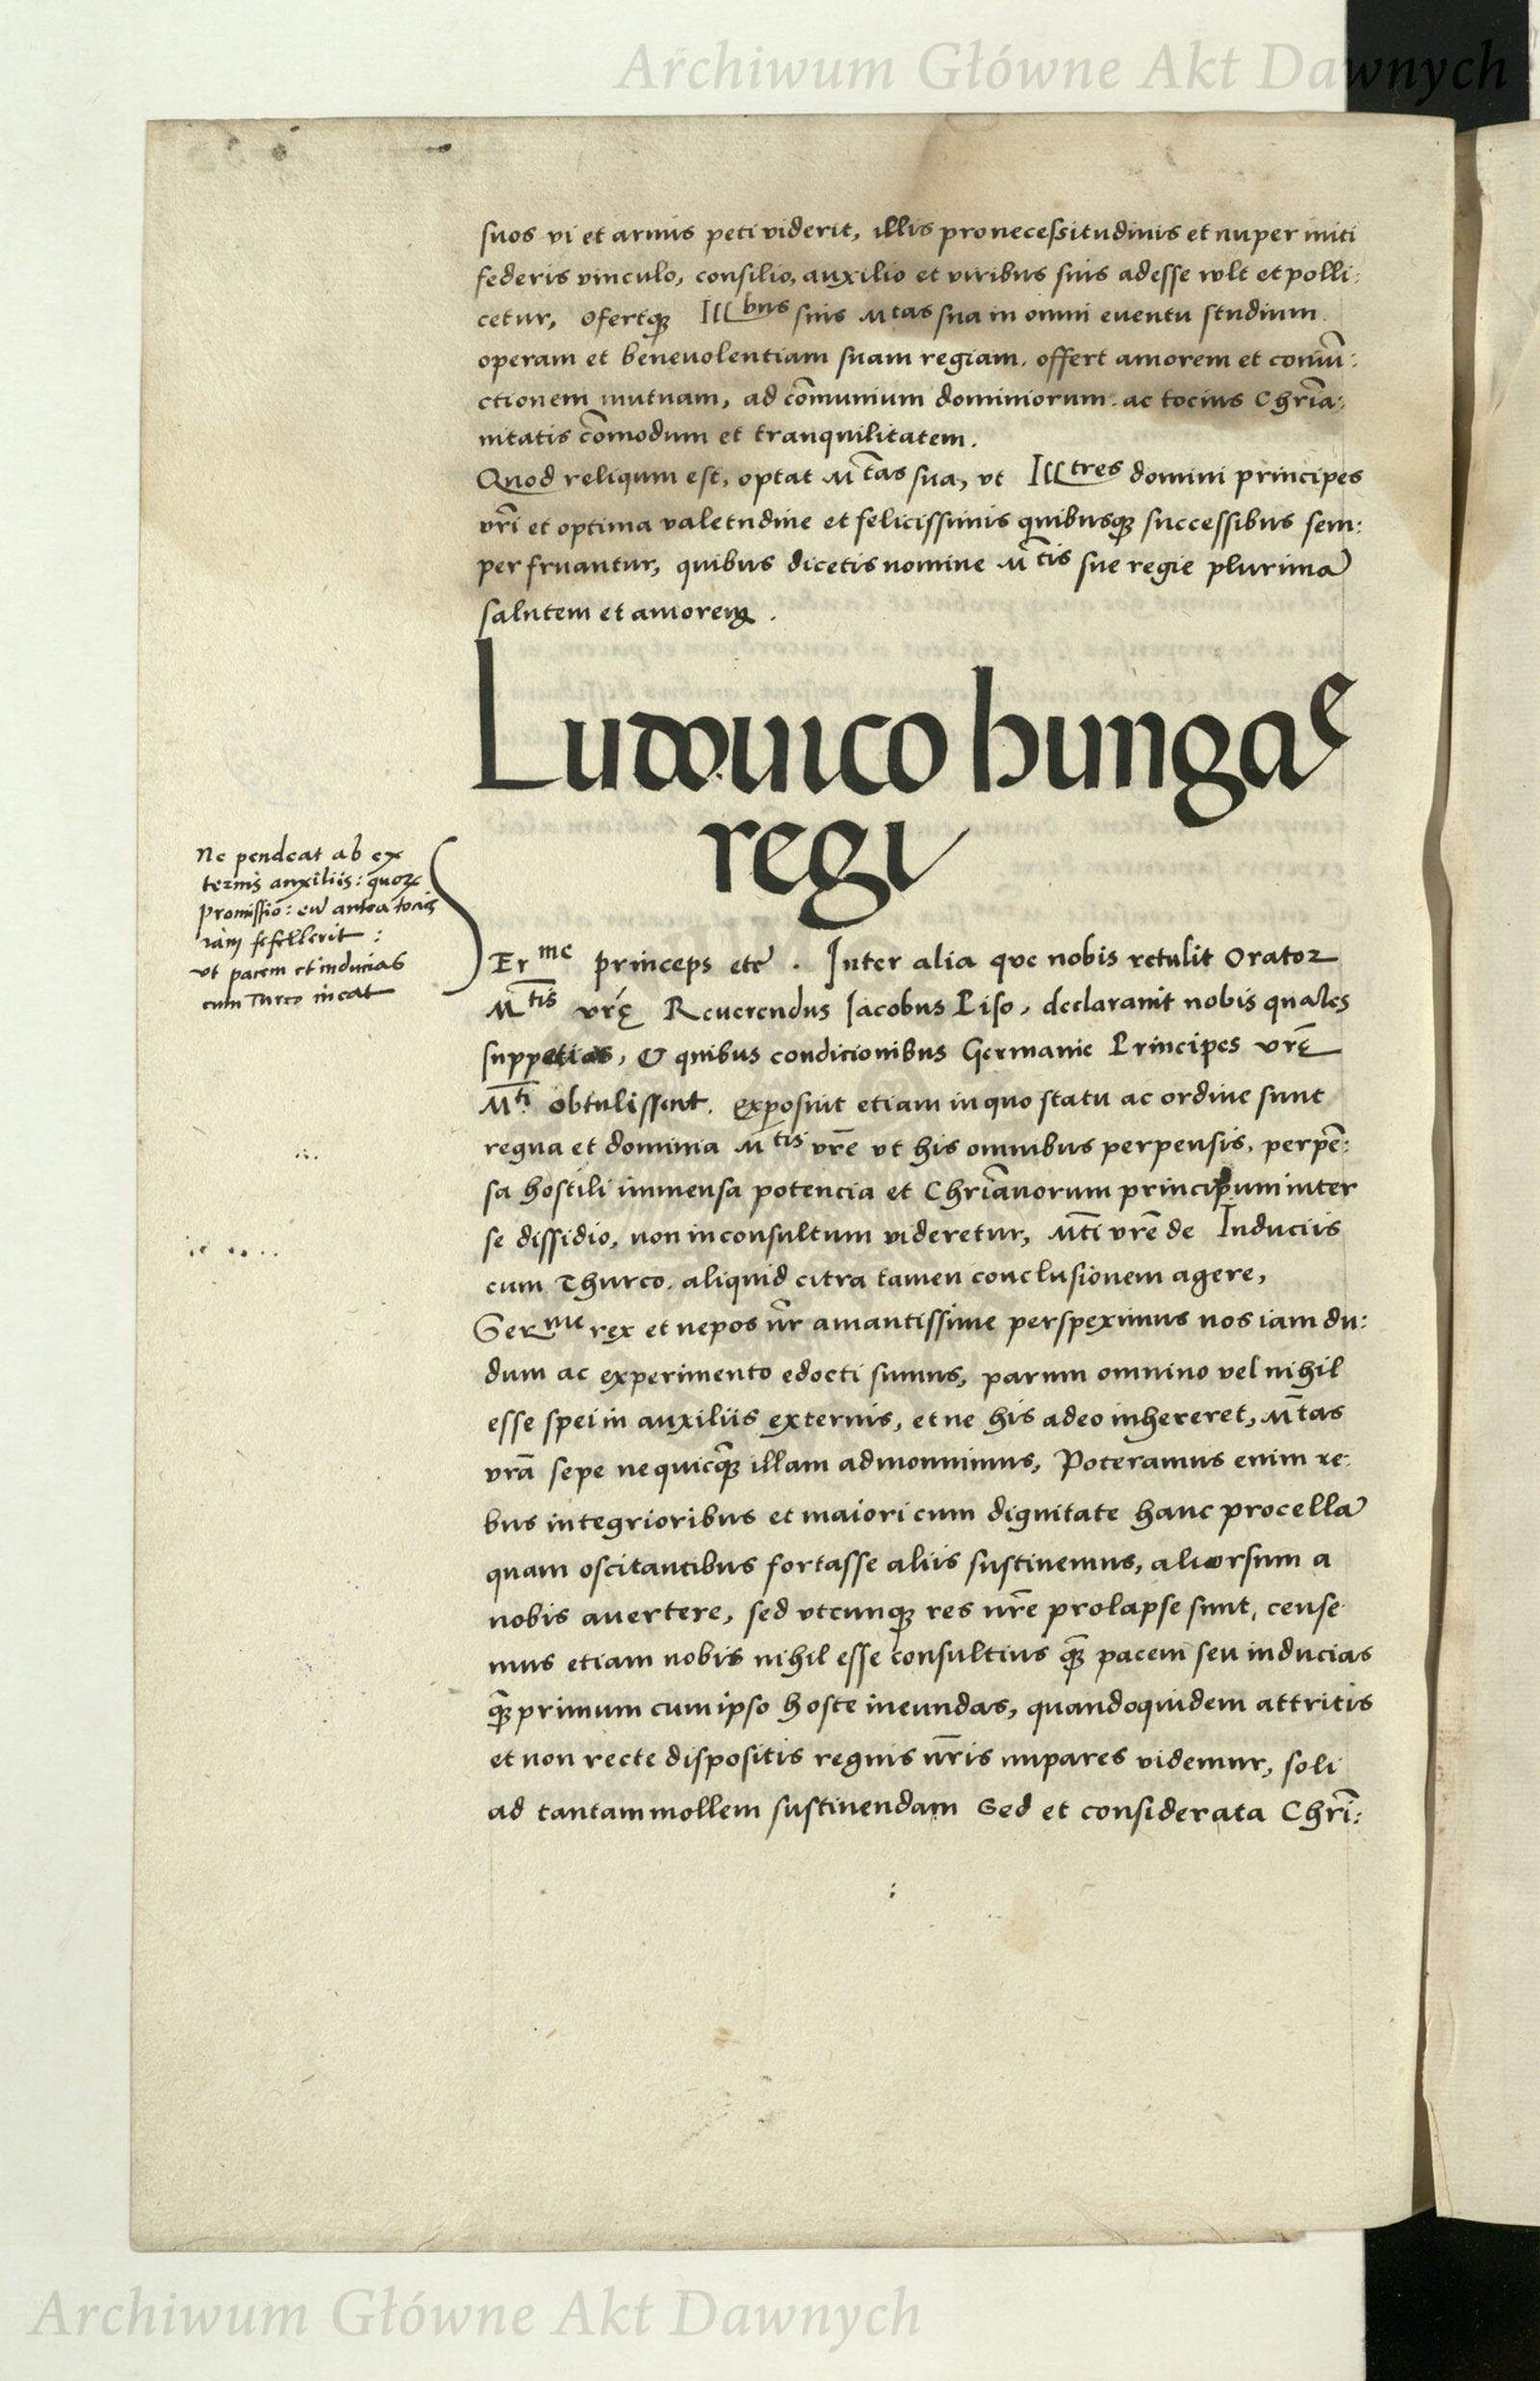 Archiwum Główne Akt Dawnych
suos vi et armis peti viderit, illis pro necessitudinis et nuper initi
federis vinculo, consilio, auxilio et viribus suis adesse vult et polli:
cetur, ofertq; Ill bus suis Mtas sua in omni eventu studium
operam et benevolentiam suam regiam. offert amorem et coniu͞:
ctionem mutuam, ad co͞munium dominiorum. ac tocius Chri͞a:
nitatis co͞modum et tranquilitatem.
Quod reliqum est, optat M͞tas sua, vt Ill tres domini principes
vr͞i et optima valetudine et felicissimis quibusq; successibus sem:
per fruantur, quibus dicetis nomine M͞tis sue regie plurima͞
salutem et amorem.
Ludovico hungae
regi
Ne pendeat ab ex
ternis auxiliis: quoꝝ
promissio: eu͞ antea
iam fefellerit:
vt pacem et inducias
cum Turco ineat
Er me princeps etc͞. Inter alia que nobis retulit Orator
M͞tis vr͞ę Reverendus Jacobus Piso, declaravit nobis quales
suppetias, & quibus condicionibus Germanie Principes vr͞ę
M͞ti obtulissent. exposuit etiam in quo statu ac ordine sunt
regna et dominia M͞tis vr͞e vt his omnibus perpensis, perpe͞:
sa hostili immensa potencia et Chri͞anorum principum inter
se dissidio, non inconsultum videretur, M͞ti vr͞e de Induciis
cum Thurco. aliquid citra tamen conclusionem agere,
Ser me rex et nepos nr͞ amantissime perspeximus nos iam du:
dum ac experimento edocti sumus, parum omnino vel nihil
esse spei in auxiliis externis, et ne his adeo inhereret, M͞tas
vr͞a sepe nequicq͞; illam admonuimus, Poteramus enim re:
bus integrioribus et maiori cum dignitate hanc procella͞
quam oscitantibus fortasse aliis sustinemus, aliorsum a
nobis avertere, sed vtcunq; res nr͞e prolapse sunt, cense
mus etiam nobis nihil esse consultius q͞; pacem seu inducias
q͞; primum cum ipso hoste ineundas, quandoquidem attritis
et non recte dispositis regnis nr͞is impares videmur, soli
ad tantam mollem sustinendam Sed et considerata Chri͞:
Archiwum Główne Akt Dawnych